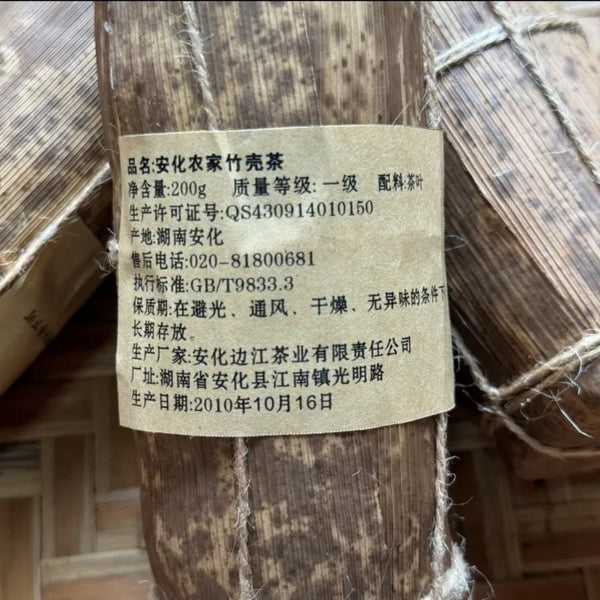 品名:安化农家竹壳茶
净含量:200g 质量等级:一级 配料:茶叶
生产许可证号:QS430914010150
产地:湖南安化
售后电话:020-81800681
执行标准:GB/T9833.3
保质期:在避光、通风、干燥、无异味的条件下
长期存放。
生产厂家:安化边江茶业有限责任公司
厂址:湖南省安化县江南镇光明路
生产日期:2010年10月16日